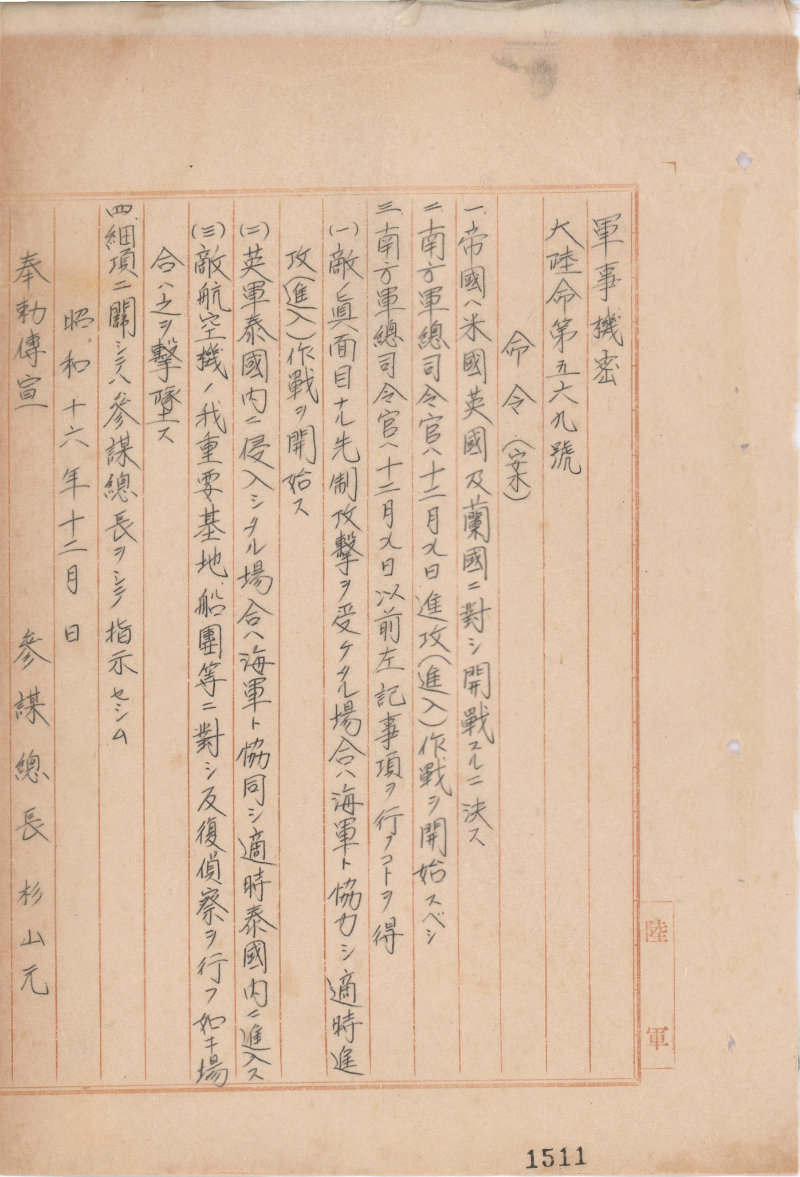 軍事機密
大陸命第五六九號
命令(案)
一、帝國ハ米國英國及蘭國ニ對シ開戰スルニ決ス
二、南方軍總司令官ハ十二月乂日進攻(進入)作戰ヲ開始スベシ
三、南方軍總司令官ハ十二月乂日以前左記事項ヲ行フコトヲ得
(一)敵ノ眞面目ナル先制攻撃ヲ受ケタル場合ハ海軍ト協力シ適時進
攻(進入)作戰ヲ開始ス
(二)英軍泰國内ニ侵入シタル場合ハ海軍ト協同シ適時泰國内ニ進入ス
(三)敵航空機ノ我重要基地、船團等ニ對シ反復偵察ヲ行フ如キ場
合ハ之ヲ擊墜ス
四、細項ニ關シテハ參謀總長ヲシテ指示セシム
昭和十六年十二月 日
奉勅傳宣 參謀總長 杉山元
陸軍
1511